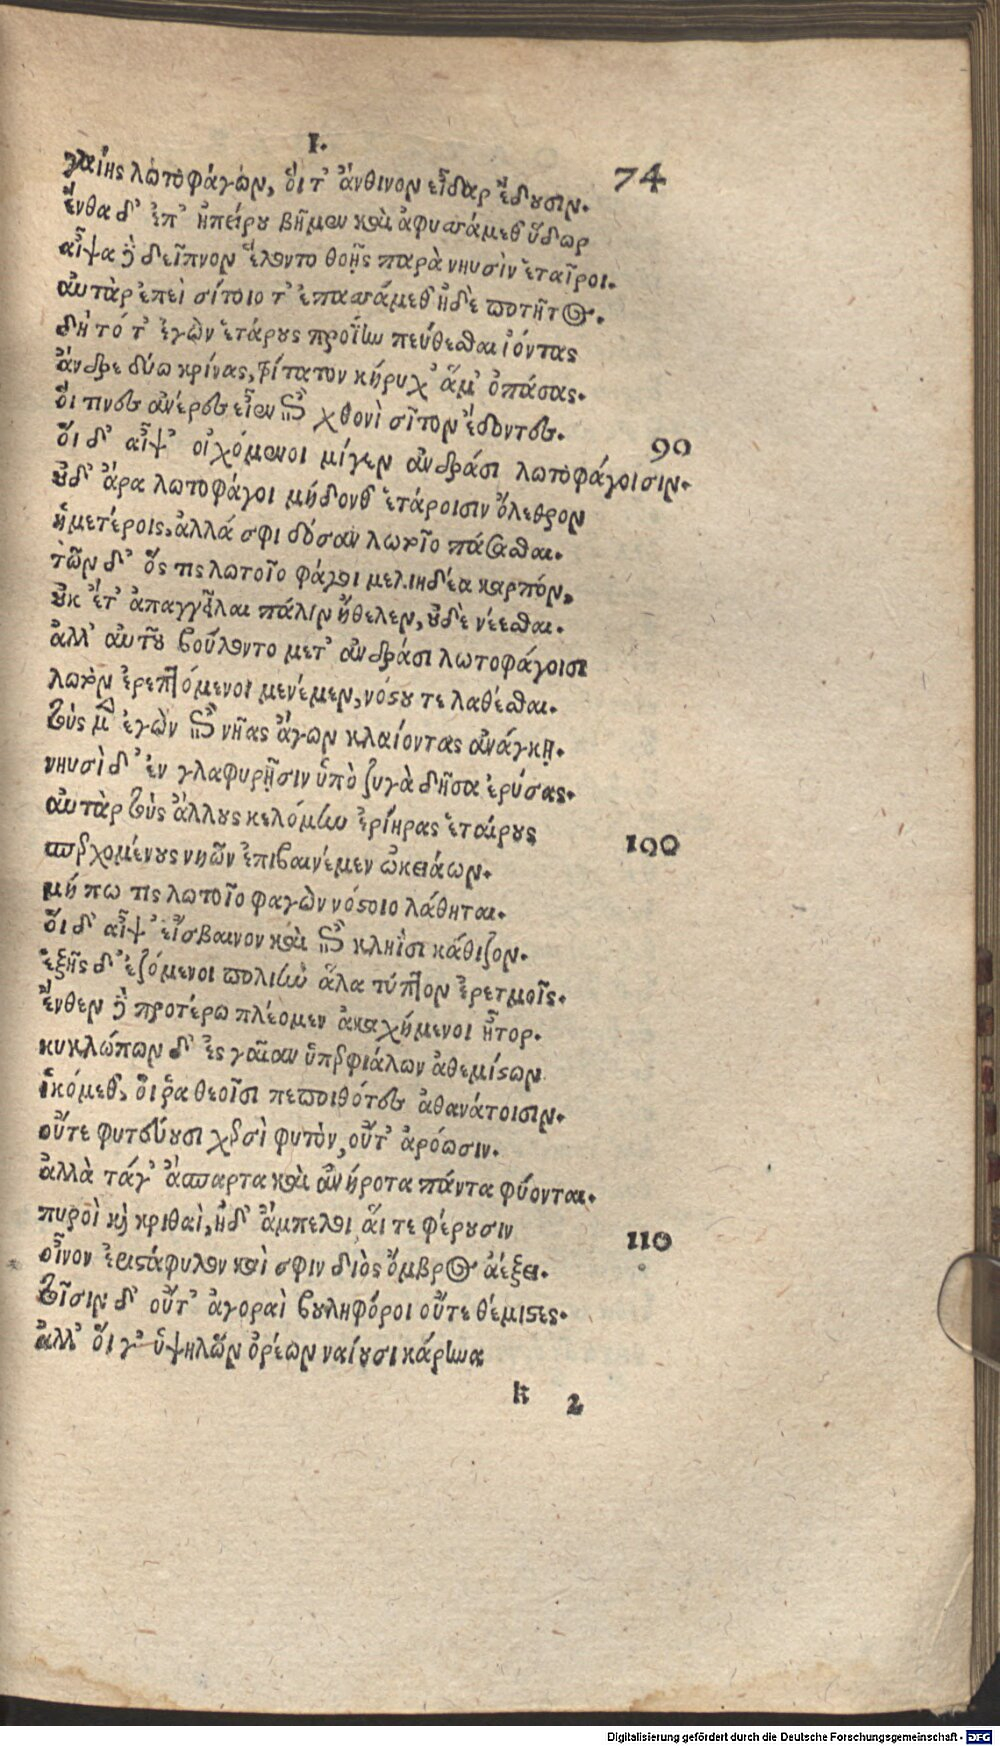 Ι.
74
γαίης λωτοφάγων, ὅι τ' ἄνθινον εἶδαρ ἔδουσιν.
ἔνθα δ' ἐπ' ἠπείρου βῆμεν καὶ ἀφυσσάμεθ' ὕδωρ
αἶψα δὲ δεῖπνον ἕλοντο θοῇς παρὰ νηυσὶν ἑταῖροι.
αὐτὰρ ἐπεὶ σίτοιο τ' ἐπασσάμεθ' ἠδὲ ποτῆτος.
δὴ τότ' ἐγὼν ἑτάρους προΐην πεύθεσθαι ἰόντας
ἄνδρε δύω κρίνας, τρίτατον κήρυχ' ἅμ' ὀπάσας.
ὅι τινες ἀνέρες εἶεν ἐπὶ χθονὶ σῖτον ἔδοντες.
90
ὅι δ' αἶψ' οἰχόμενοι μίγεν ἀνδράσι λωτοφάγοισιν.
οὐδ' ἄρα λωτοφάγοι μήδονθ' ἑτάροισιν ὄλεθρον
ἡμετέροις, ἀλλά σφι δόσαν λωτοῖο πάσασθαι.
τῶν δ' ὅς τις λωτοῖο φάγοι μελιηδέα καρπόν,
οὐκ ἔτ' ἀπαγγεῖλαι πάλιν ἤθελεν, οὐδὲ νέεσθαι.
ἀλλ' αὐτοῦ βούλοντο μετ' ἀνδράσι λωτοφάγοισι
λωτὸν ἐρεπτόμενοι μενέμεν, νόστου τε λαθέσθαι.
τοὺς μὲν ἐγὼν ἐπὶ νῆας ἄγων κλαίοντας ἀνάγκῃ.
νηυσὶ δ' ἐν γλαφυρῇσιν ὑπὸ ζυγὰ δῆσα ἐρύσας.
αὐτὰρ τοὺς ἄλλους κελόμην ἐρίηρας ἑταίρους
100
σπερχομένους νηῶν ἐπιβαινέμεν ὠκειάων.
μή πω τις λωτοῖο φαγὼν νόστοιο λάθηται.
ὅι δ' αἶψ' εἴσβαινον καὶ ἐπὶ κληῗσι κάθιζον.
ἑξῆς δ' ἑζόμενοι πολιὴν ἅλα τύπτον ἐρετμοῖς.
ἔνθεν δὲ προτέρω πλέομεν ἀκαχήμενοι ἦτορ.
κυκλώπων δ' ἐς γαῖαν ὑπερφιάλων ἀθεμίστων
ἱκόμεθ', ὅι ῥα θεοῖσι πεποιθότες ἀθανάτοισιν.
οὔτε φυτεύουσι χερσὶ φυτὸν, οὔτ' ἀρόωσιν.
ἀλλὰ τάγ' ἄσπαρτα καὶ ἀνήροτα πάντα φύονται.
110
πυροὶ καὶ κριθαὶ, ἠδ' ἄμπελοι, ἅι τε φέρουσιν
οἶνον ἐριστάφυλον καὶ σφιν διὸς ὄμβρος ἀέξει.
τοῖσιν δ' οὔτ' ἀγοραὶ βουληφόροι οὔτε θέμιστες.
ἀλλ' ὅι γ' ὑψηλῶν ὀρέων ναίουσι κάρηνα
k 2
Digitalisierung gefördert durch die Deutsche Forschungsgemeinschaft - DFG